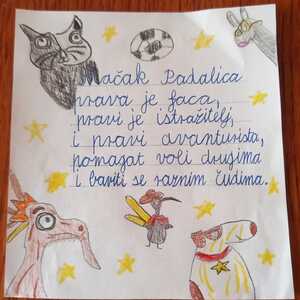 Mačak Padalica
prava je faca,
pravi je istražitelj,
i pravi avanturista,
pomagat voli drugima
i baviti se raznim čudima.